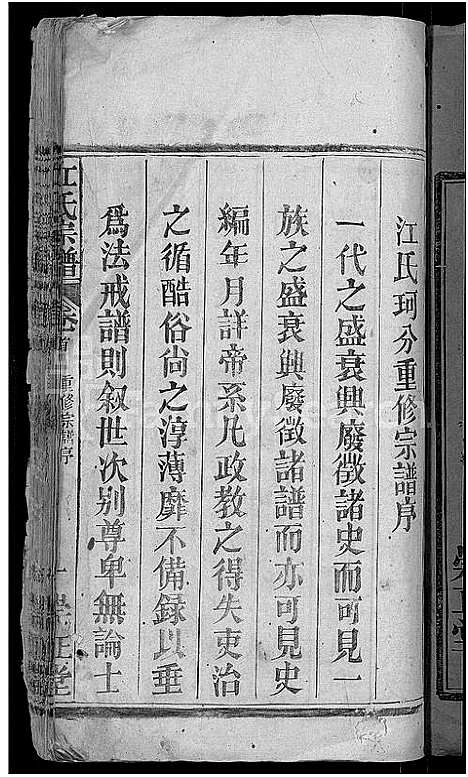 江氏珂分重修宗譜序
一代之盛衰興廢徵諸史而可見一
族之盛衰興廢徵諸譜而亦可見史
編年月詳帝系凡政教之得失吏治
之循酷俗尚之淳薄靡不備録以垂
爲法戒譜則叙世次别尊卑無論士
江氏宗譜 卷首 重修宗譜序 一